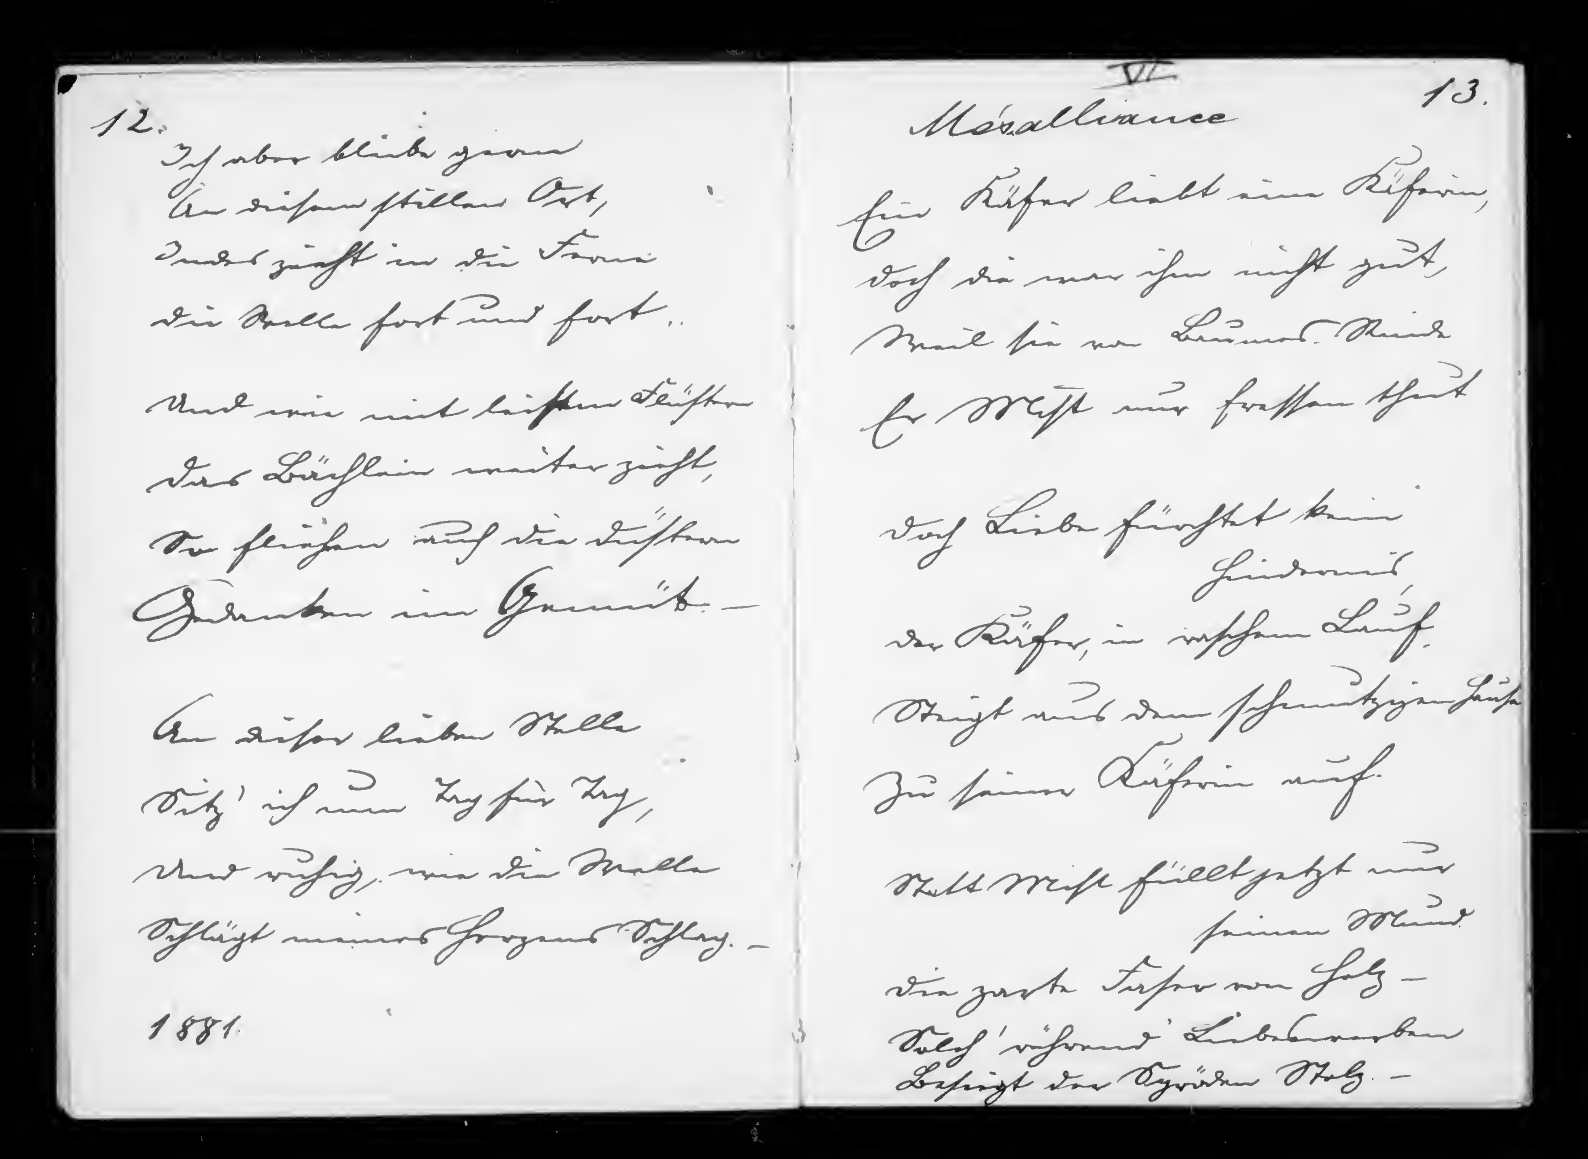 12.
Ich aber bleibe gern
An diesem stillen Ort,
Indes zieht in die Ferne
die Welle fort und fort ..
Und wie mit leisem Flüstern
das Bächlein weiter zieht,
So fliehen auch die düstern
Gedanken im Gemüt. —
An dieser lieben Stelle
Sitz' ich nun Tag für Tag,
Und ruhig, wie die Welle
Schlägt meines Herzens Schlag. —
1881.
VI
13.
Mésalliance
Ein Käfer liebt eine Käferin,
doch die war ihm nicht gut,
Weil sie von Baumes-Rinde
Er Mist nur fressen thut
doch Liebe fürchtet kein
Hindernis,
der Käfer, in raschem Lauf,
Steigt aus dem schmutzigen Hause
Zu seiner Käferin auf.
Statt Mist füllt jetzt nur
seinen Mund
die zarte Faser von Holz —
Solch' rührend' Liebeswerben
Besiegt der Spröden Stolz. —